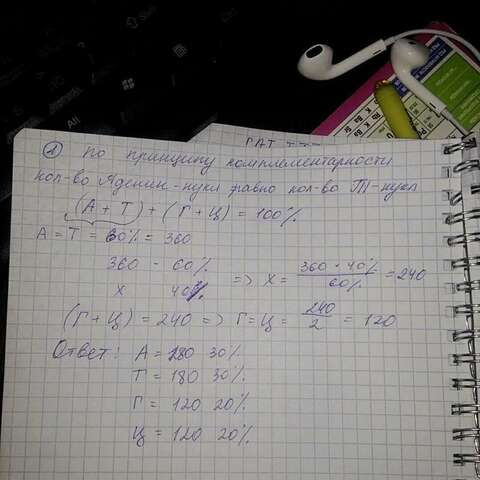 Alt
ГАТ
① По принципу комплементарности
кол-во Аденин-нукл равно кол-во Т-нукл
(А + Т) + (Г + Ц) = 100%
А = Т = 60% = 360
360 - 60%
х 40%
=> х = 360 · 40% / 60% = 240
(Г + Ц) = 240 => Г = Ц = 240 / 2 = 120
Ответ: А = 180 30%
Т = 180 30%
Г = 120 20%
Ц = 120 20%